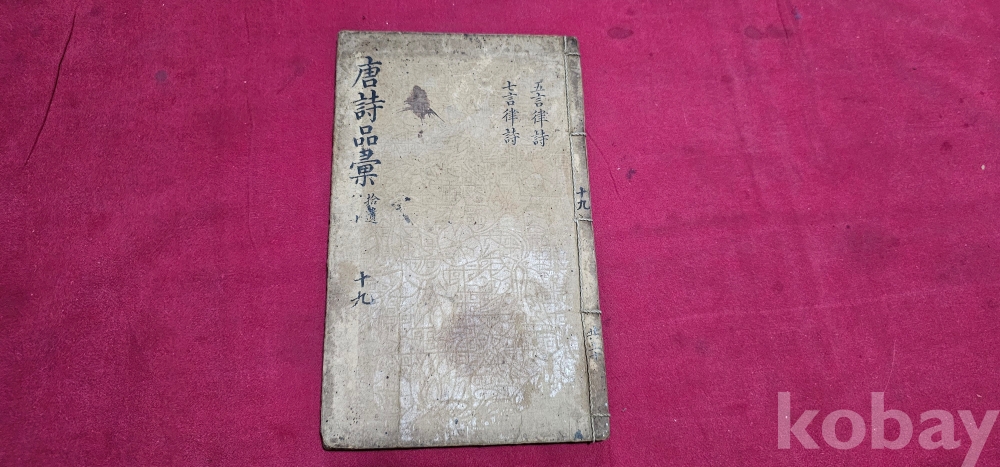 唐詩品彙
拾遺
十九
五言律詩
七言律詩
十九
kobay